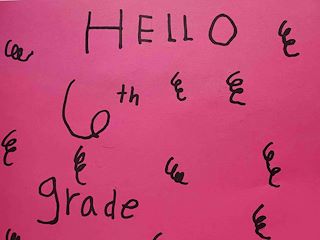 HELLO
6th
grade